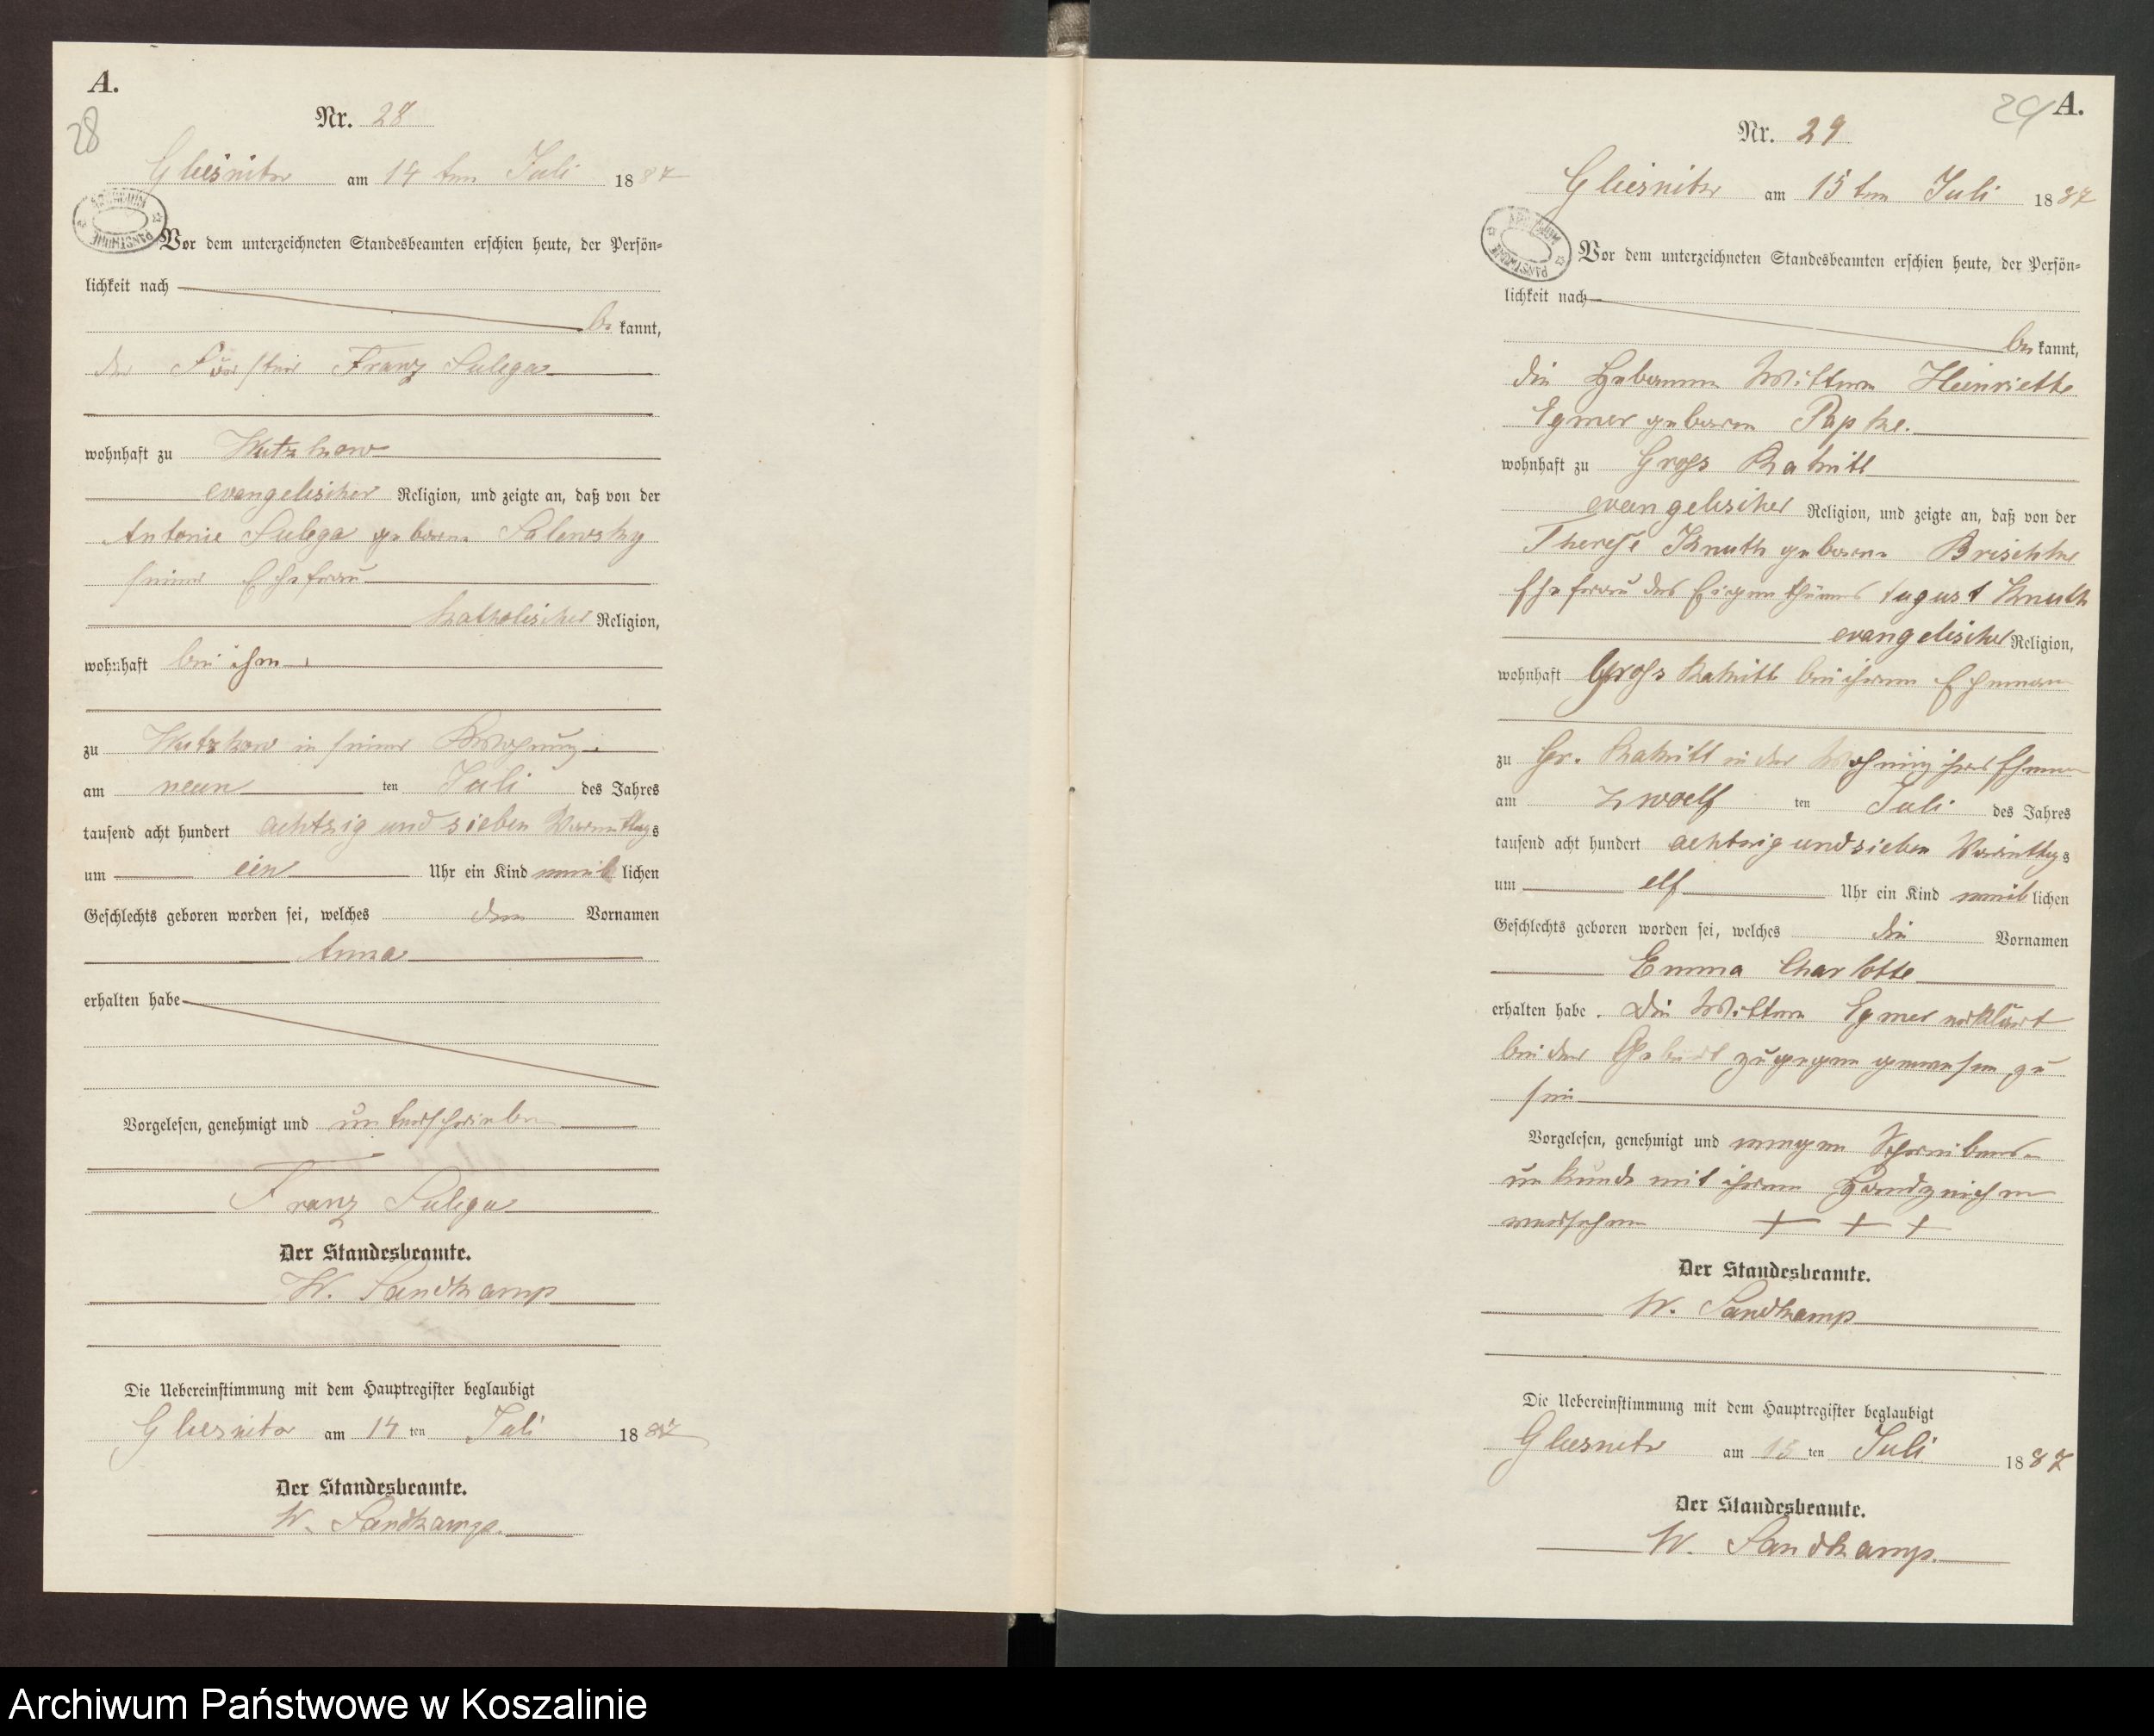 A.
28
Nr. 28
Gliesnitz am 14 ten Juli 1887
Vor dem unterzeichneten Standesbeamten erschien heute, der Persön-
lichkeit nach
be kannt,
der Förster Franz Sulega
wohnhaft zu Wutzkow
evangelischer Religion, und zeigte an, daß von der
Antonie Sulega geborene Salewsky
seiner Ehefrau
katholischer Religion,
wohnhaft bei ihm
zu Wutzkow in seiner Wohnung
am neun ten Juli des Jahres
tausend acht hundert achtzig und sieben Vormittags
um ein Uhr ein Kind weib lichen
Geschlechts geboren worden sei, welches den Vornamen
Anna
erhalten habe
Vorgelesen, genehmigt und unterschrieben
Franz Sulega
Der Standesbeamte.
W. Sandkamp
Die Uebereinstimmung mit dem Hauptregister beglaubigt
Gliesnitz am 14 ten Juli 1887
Der Standesbeamte.
W. Sandkamp.
29 A.
Nr. 29
Gliesnitz am 15 ten Juli 1887
ARCHIWUM PAŃSTWOWE
Vor dem unterzeichneten Standesbeamten erschien heute, der Persön-
lichkeit nach
be kannt,
die Hebamme Wittwe Henriette
Egmer geborene Papke.
wohnhaft zu Gross Rakitt
evangelischer Religion, und zeigte an, daß von der
Therese Knuth geborene Brischke
Ehefrau des Eigenthümers August Knuth
evangelischer Religion,
wohnhaft Gross Rakitt bei ihrem Ehemann
zu Gr. Rakitt in der Wohnung ihres Ehemann
am zwoelf ten Juli des Jahres
tausend acht hundert achtzig und sieben Vormittags
um elf Uhr ein Kind weib lichen
Geschlechts geboren worden sei, welches die Vornamen
Emma Charlotte
erhalten habe. Die Wittwe Egmer erklärt
bei der Geburt zugegen gewesen zu
sein
Vorgelesen, genehmigt und wegen Schreibens-
unkunde mit ihrem Handzeichen
versehen + + +
Der Standesbeamte.
W. Sandkamp
Die Uebereinstimmung mit dem Hauptregister beglaubigt
Gliesnitz am 15 ten Juli 1887
Der Standesbeamte.
W. Sandkamp.
Archiwum Państwowe w Koszalinie